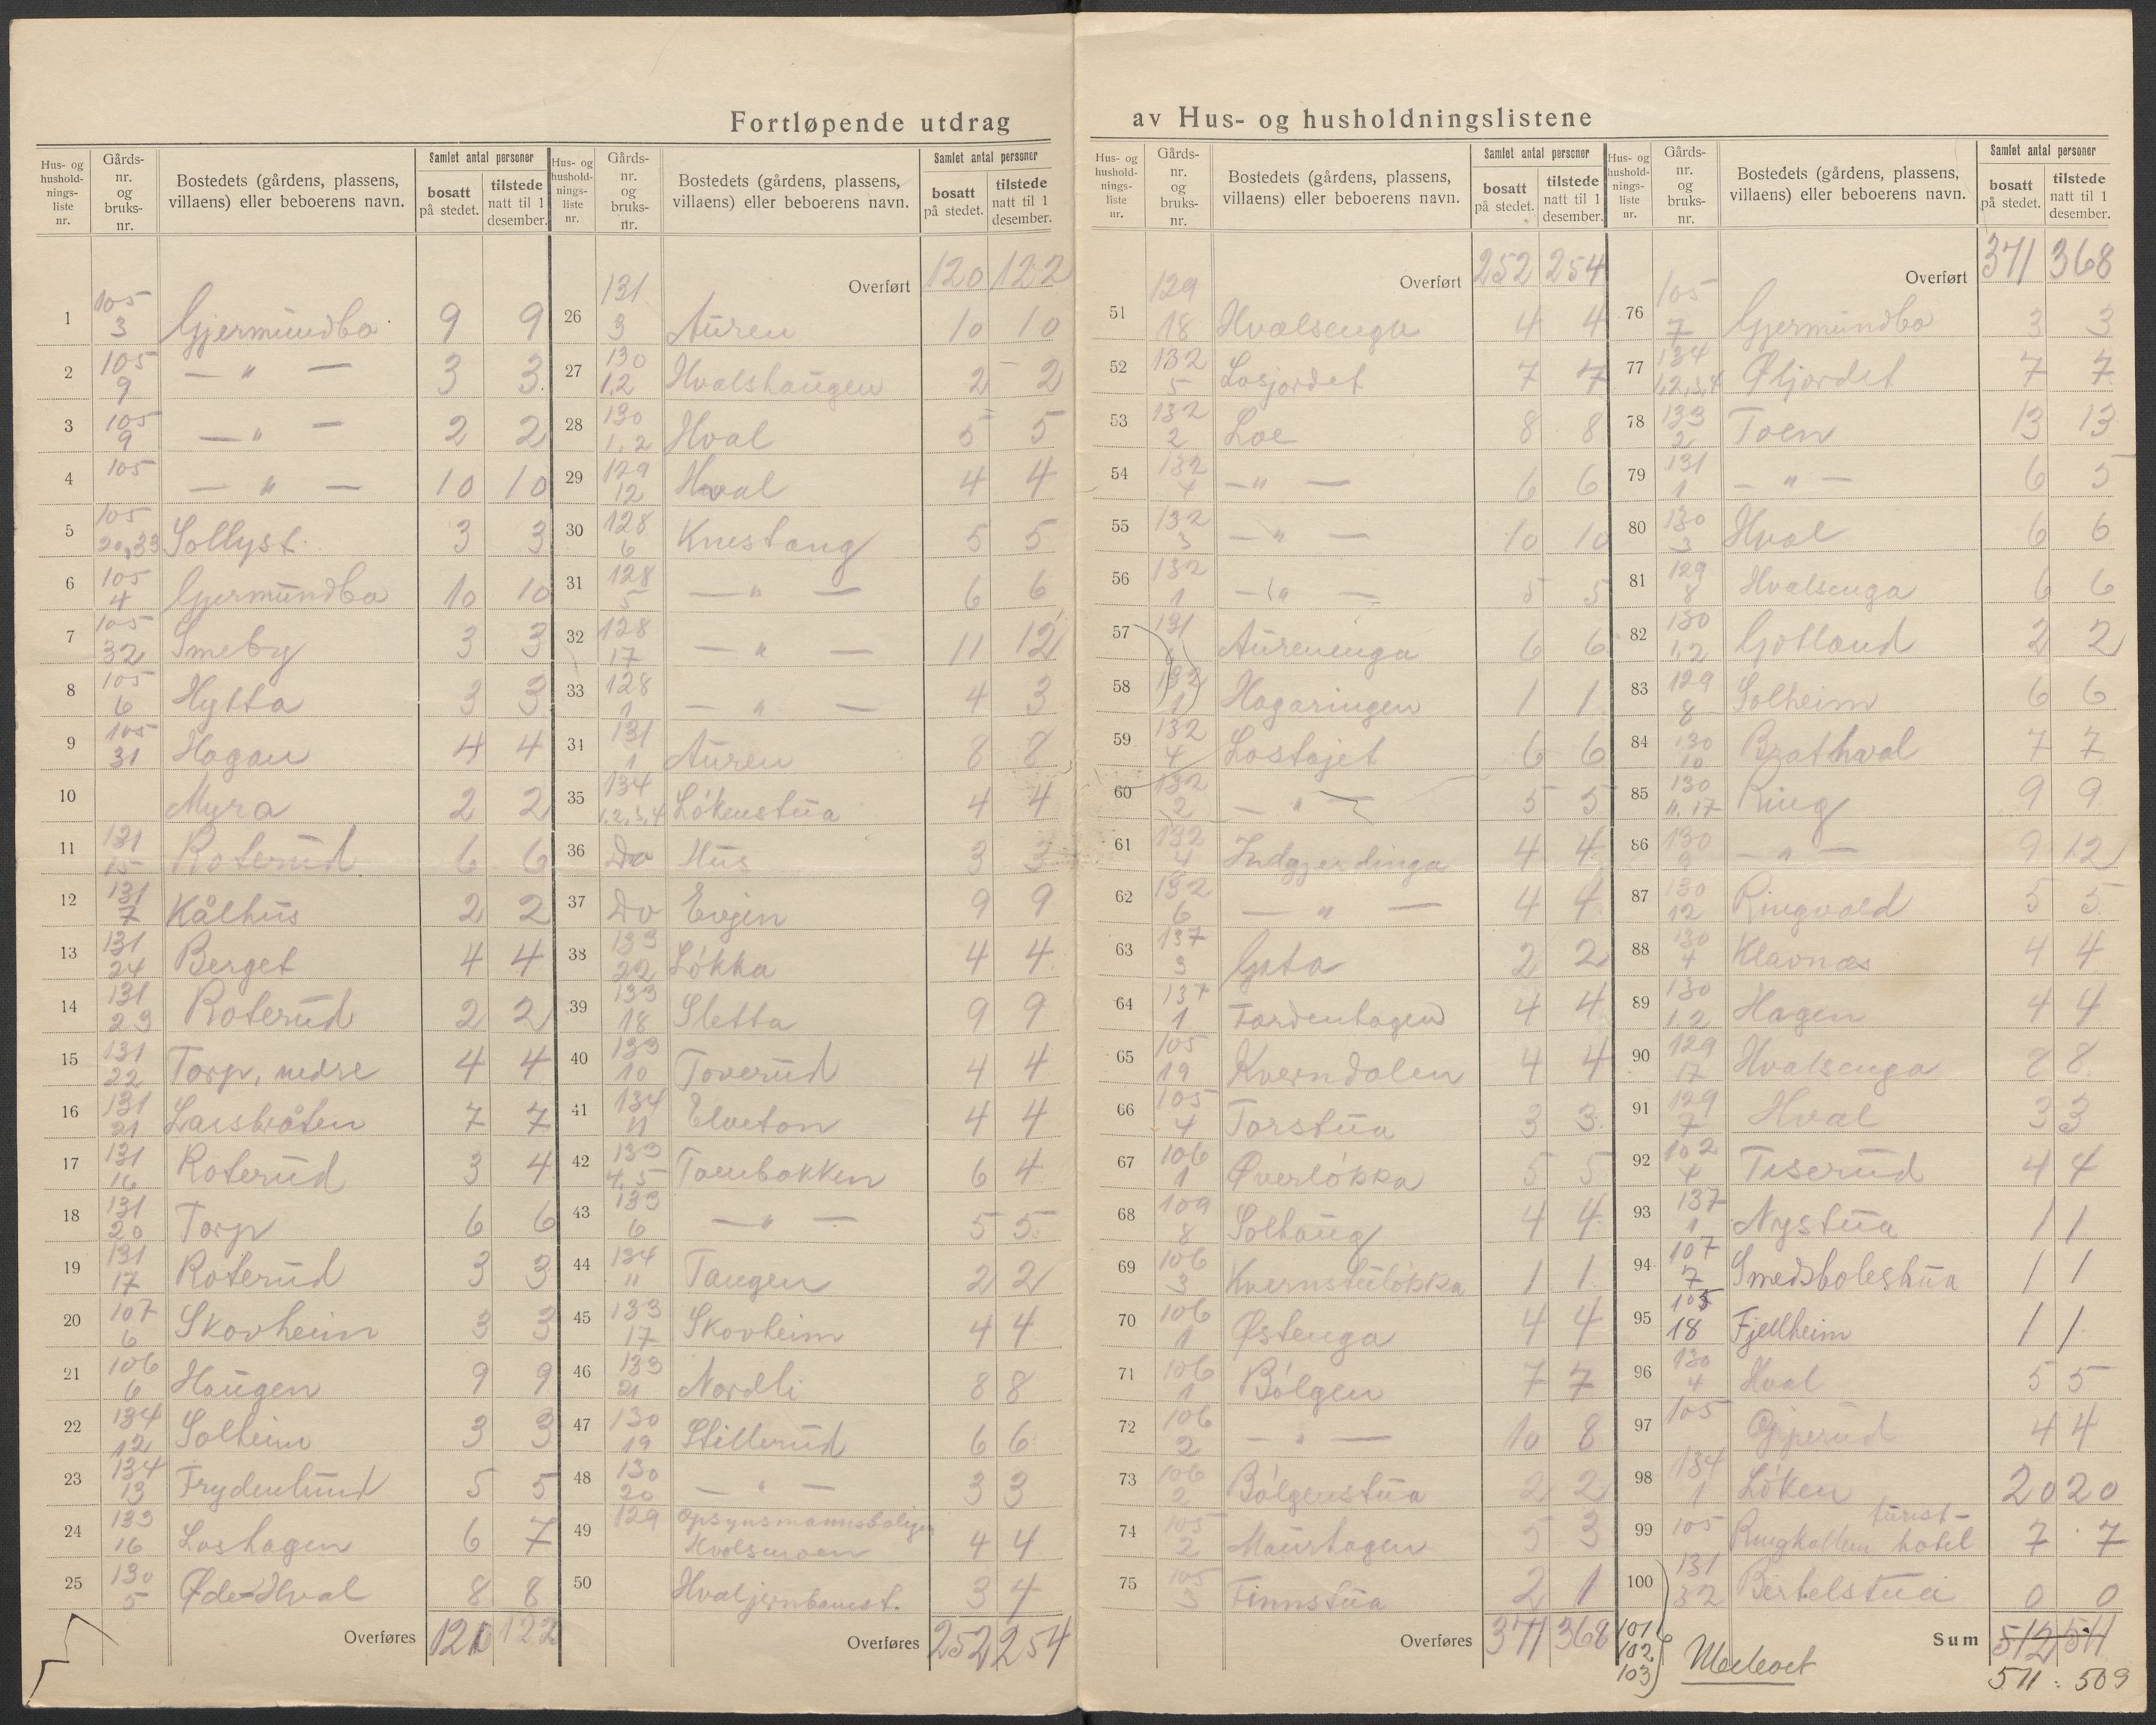 Fortløpende utdrag av Hus- og husholdningslistene
Hus- og hushold-nings-liste nr. | Gårds-nr. og bruks-nr. | Bostedets (gårdens, plassens, villaens) eller beboerens navn. | Samlet antal personer | bosatt på stedet. | tilstede natt til 1 desember.
1 105 3 Gjermundbo 9 9
2 105 9 — " — 3 3
3 105 9 — " — 2 2
4 105 — " — 10 10
5 105 20,33 Sollyst 3 3
6 105 4 Gjermundbo 10 10
7 105 32 Smeby 3 3
8 105 6 Hytta 3 3
9 105 31 Hagan 4 4
10 Myra 2 2
11 131 15 Roterud 6 6
12 131 7 Kålhus 2 2
13 131 24 Berget 4 4
14 131 23 Roterud 2 2
15 131 22 Torp, nedre 4 4
16 131 21 Larsbråten 7 7
17 131 16 Roterud 3 4
18 131 20 Torp 6 6
19 131 17 Roterud 3 3
20 107 6 Skovheim 3 3
21 106 6 Haugen 9 9
22 134 12 Solheim 3 3
23 134 13 Frydenlund 5 5
24 133 16 Loshagen 6 7
25 130 5 Øde-Hval 8 8
Overføres 120 122
Hus- og hushold-nings-liste nr. | Gårds-nr. og bruks-nr. | Bostedets (gårdens, plassens, villaens) eller beboerens navn. | Samlet antal personer | bosatt på stedet. | tilstede natt til 1 desember.
Overført 120 122
26 131 3 Auren 10 10
27 130 1,2 Hvalshaugen 2 2
28 130 1,2 Hval 5 5
29 129 12 Hval 4 4
30 128 6 Knestang 5 5
31 128 5 — " — 6 6
32 128 17 — " — 11 12
33 128 1 — " — 4 3
34 131 1 Auren 8 8
35 134 1,2,3,4 Løkenstua 4 4
36 Do Hus 3 3
37 Do Evjen 9 9
38 133 22 Løkka 4 4
39 133 18 Sletta 9 9
40 133 10 Toverud 4 4
41 134 11 Elveton 4 4
42 133 4,5 Toenbakken 6 4
43 133 6 — " — 5 5
44 134 11 Tangen 2 2
45 133 17 Skovheim 4 4
46 133 21 Nordli 8 8
47 130 19 Stillerud 6 6
48 130 20 — " — 3 3
49 129 Opsynsmannsboligen
Hvalsmoen 4 4
50 Hval jernbanest. 3 4
Overføres 252 254
Hus- og hushold-nings-liste nr. | Gårds-nr. og bruks-nr. | Bostedets (gårdens, plassens, villaens) eller beboerens navn. | Samlet antal personer | bosatt på stedet. | tilstede natt til 1 desember.
Overført 252 254
51 129 18 Hvalsenga 4 4
52 132 5 Losjordet 7 7
53 132 2 Loe 8 8
54 132 4 — " — 6 6
55 132 3 — " — 10 10
56 132 1 — " — 5 5
57 131 Aurenenga 6 6
58 132 1 Hagaringen 1 1
59 132 4 Lostøjet 6 6
60 132 2 — " — 5 5
61 132 4 Indgjerdinga 4 4
62 132 6 — " — 4 4
63 137 3 Gata 2 2
64 137 1 Tordenhagen 4 4
65 105 19 Kverndalen 4 4
66 105 4 Torstua 3 3
67 106 1 Øverløkka 5 5
68 109 8 Solhaug 4 4
69 106 3 Kvernstuløkka 1 1
70 106 1 Østenga 4 4
71 106 1 Bølgen 7 7
72 106 2 — " — 10 8
73 106 2 Bølgenstua 2 2
74 105 2 Maurhagen 5 3
75 105 3 Finnstua 2 1
Overføres 371 368
Hus- og hushold-nings-liste nr. | Gårds-nr. og bruks-nr. | Bostedets (gårdens, plassens, villaens) eller beboerens navn. | Samlet antal personer | bosatt på stedet. | tilstede natt til 1 desember.
Overført 371 368
76 105 7 Gjermundbo 3 3
77 134 1,2,3,4 Øljordet 7 7
78 133 2 Toen 13 13
79 131 1 — " — 6 5
80 130 3 Hval 6 6
81 129 8 Hvalsenga 6 6
82 130 1,2 Gotland 2 2
83 129 8 Solheim 6 6
84 130 10 Brathval 7 7
85 130 11,17 Ring 9 9
86 130 9 — " — 9 12
87 130 12 Ringvold 5 5
88 130 4 Klavnæs 4 4
89 130 1,2 Hagen 4 4
90 129 17 Hvalsenga 8 8
91 129 7 Hval 3 3
92 102 4 Tiserud 4 4
93 137 1 Nystua 1 1
94 107 7 Smedsbolestua 1 1
95 105 18 Fjellheim 1 1
96 130 4 Hval 5 5
97 105 Opperud 4 4
98 134 1 Løken 20 20
99 105 Ringkollen turist-
hotel 7 7
100 131 32 Bertelstua 0 0
101
102
103
Sum 512 511
511 : 509